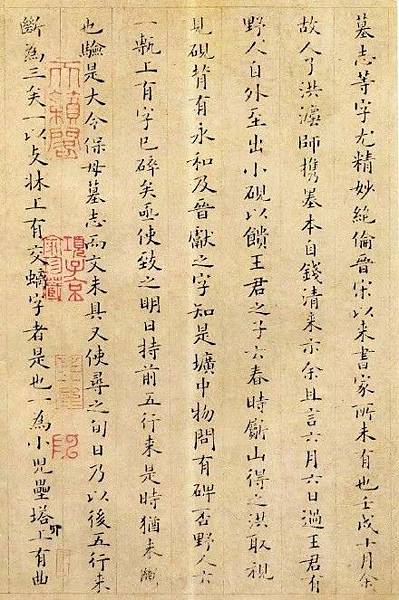 墓志等字尤精妙絕倫晉宋以來書家所未有也壬戌十月余
故人了洪師攜墓本自錢清來示余且言六月六日過王君有
野人自外至出小硯以饋王君之子云春時斸山得之洪取視
見硯背有永和及晉獻之字知是壙中物問有碑否野人云
一甎上有字已碎矣亟使致之明日持前五行來是時猶未斷
也驗是大令保母墓志而文未具又使尋之旬日乃以後五行來
斷為三矣一以支牀上有交螭字者是也一為小兒壘塔上有曲
天籟閣
項子京家珍藏